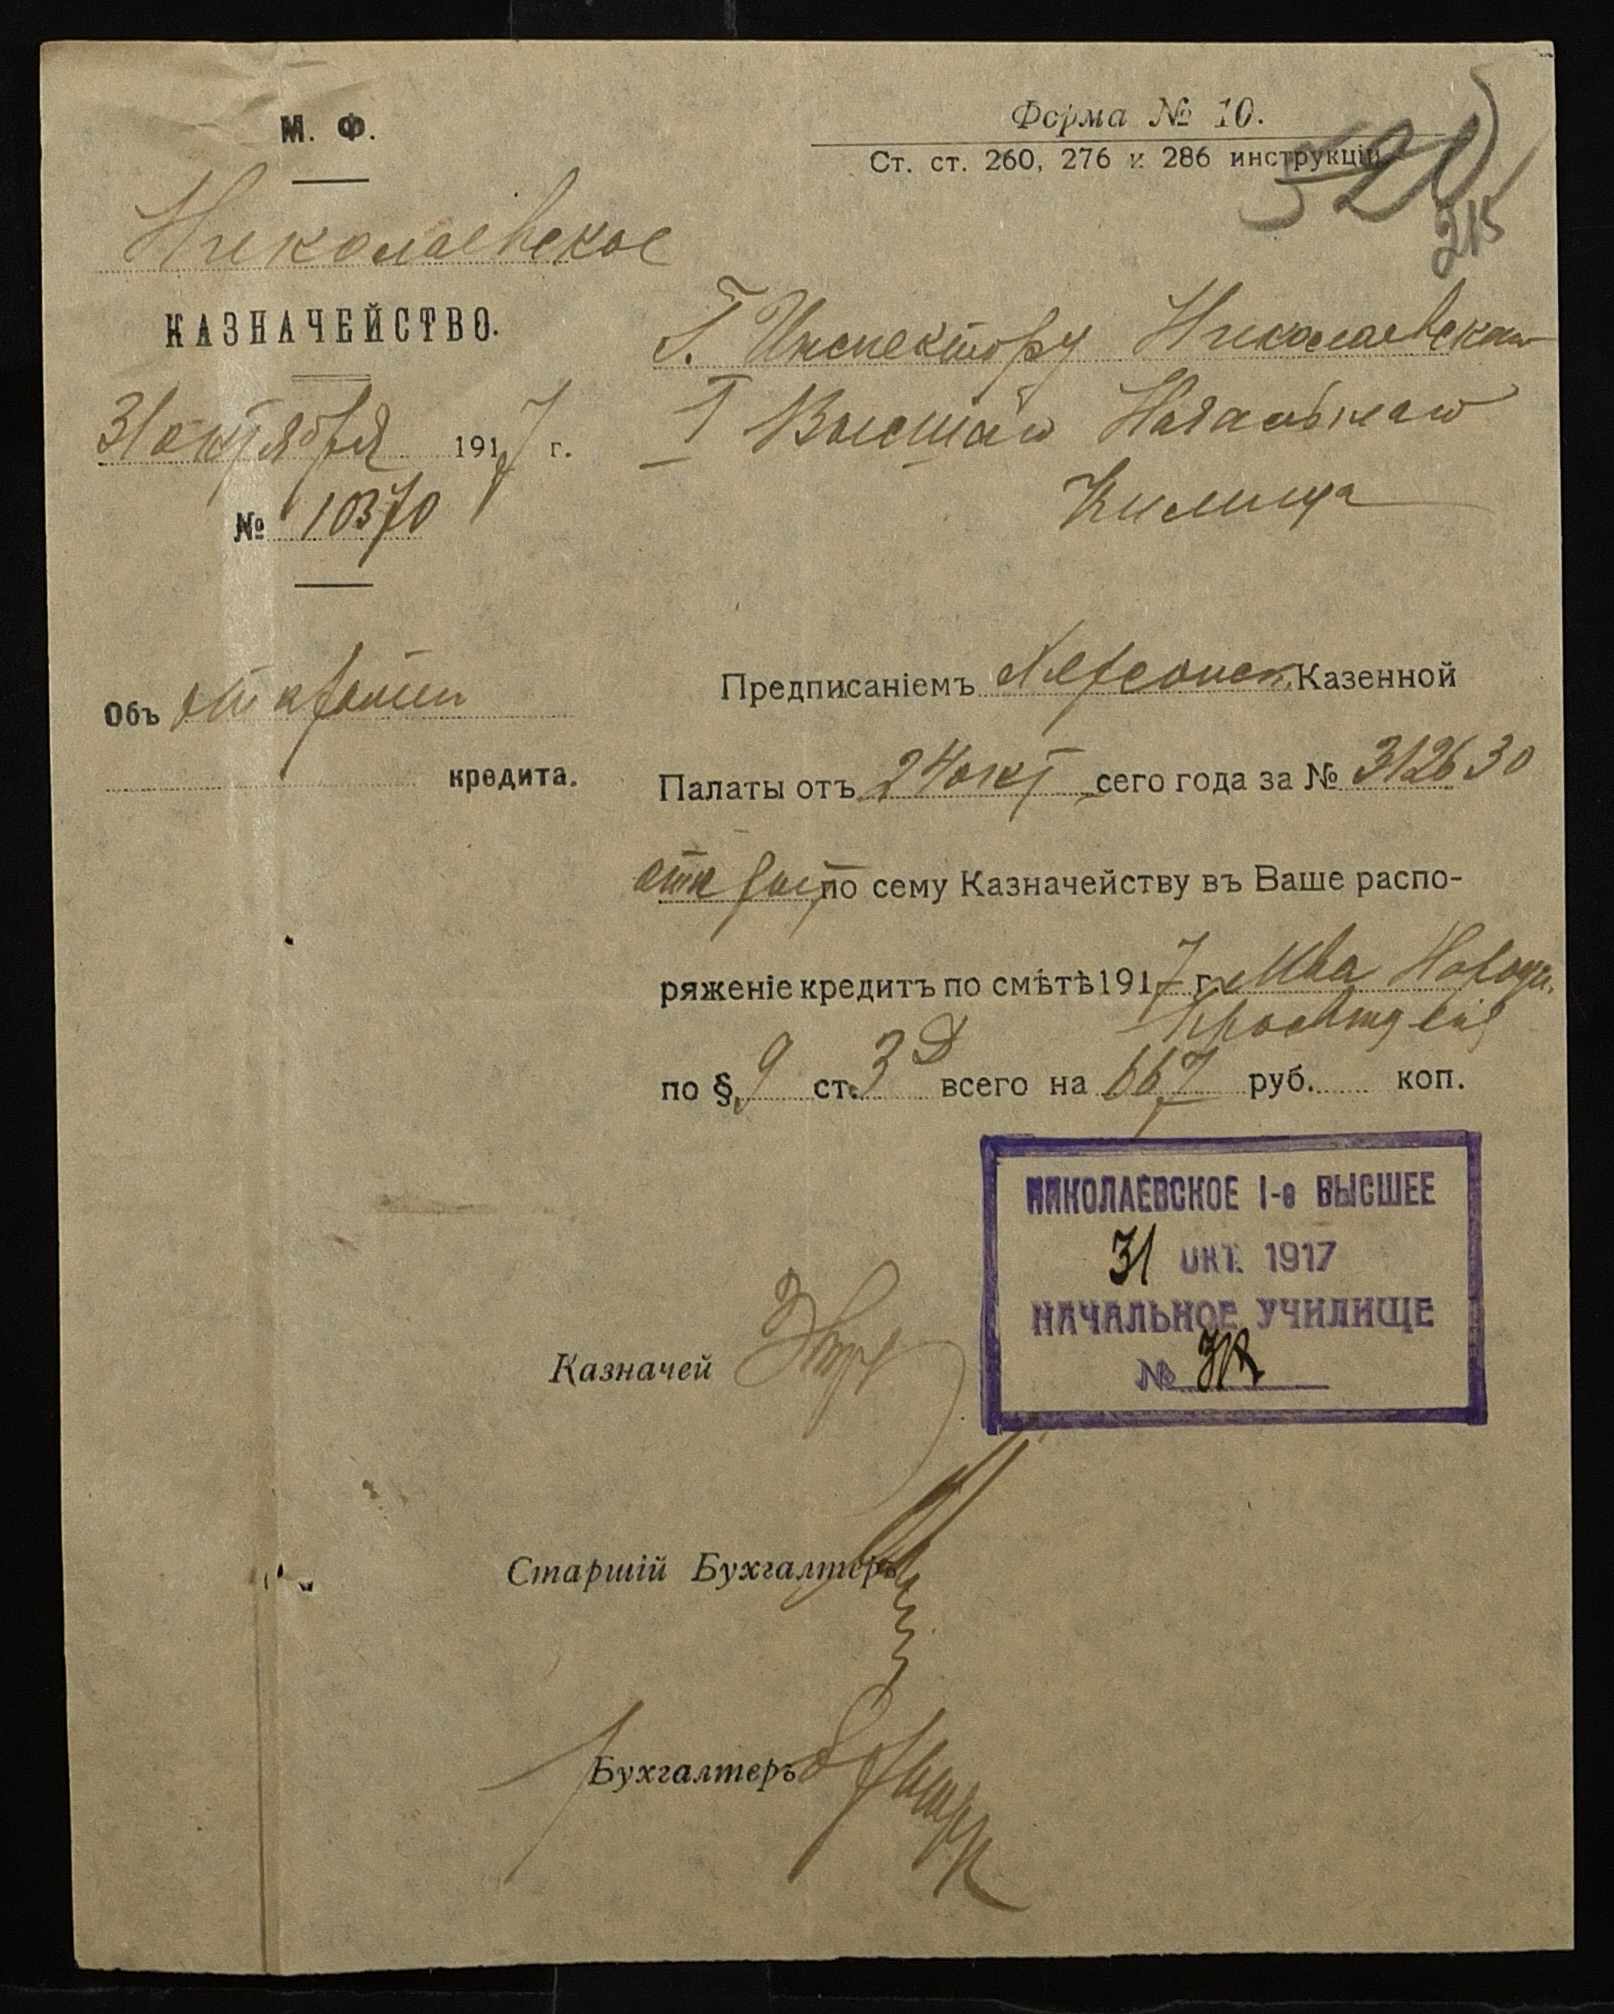 М. Ф.
Форма № 10.
Ст. ст. 260, 276 и 286 инструкціи
520
215
Николаевское
КАЗНАЧЕЙСТВО.
31 октября 1917 г.
№ 10370
Г. Инспектору Николаевскаго
I Высшаго Начальнаго
Училища
Объ открытіи
кредита.
Предписаніемъ Херсонск. Казенной
Палаты отъ 24 окт сего года за № 312630
открыт по сему Казначейству въ Ваше распо-
ряженіе кредитъ по смѣтѣ 1917 г. М-ва Народн.
Просвѣщенія
по § 9 ст. 3 всего на 667 руб. коп.
НИКОЛАЕВСКОЕ I-е ВЫСШЕЕ
31 ОКТ. 1917
НАЧАЛЬНОЕ УЧИЛИЩЕ
№
Казначей
Старшій Бухгалтеръ
Бухгалтеръ